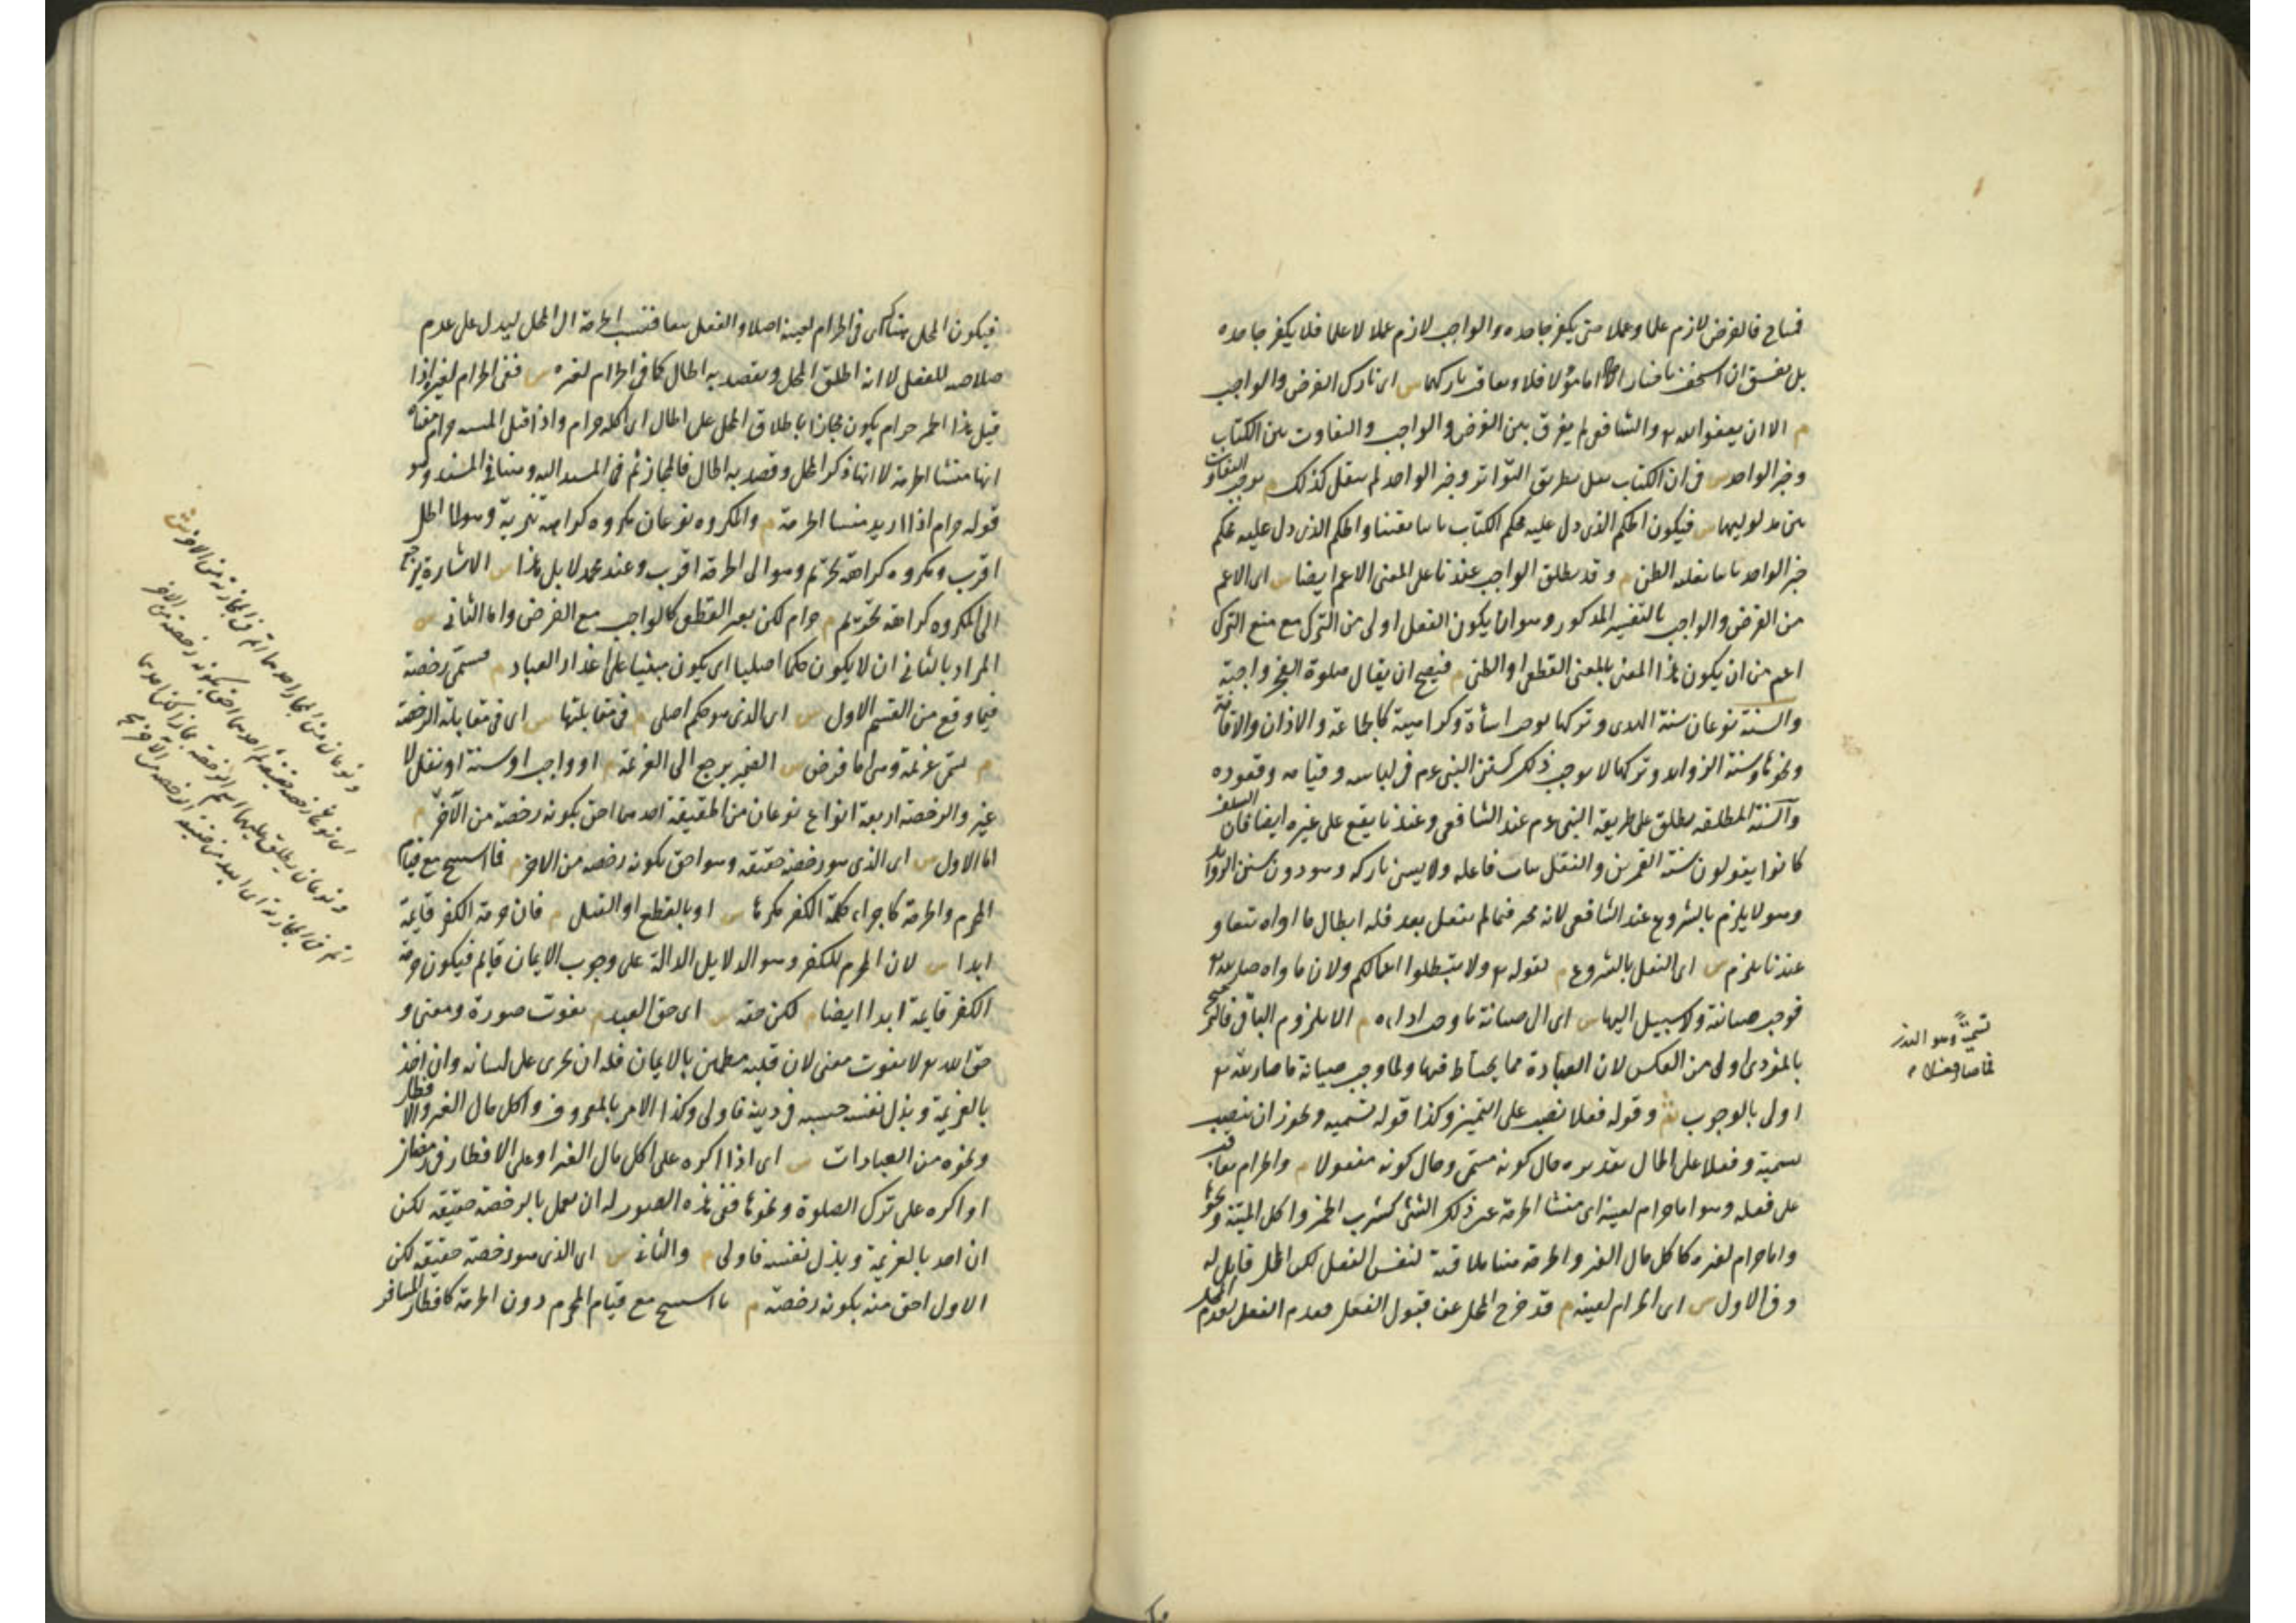 فساح فالفرض لازم علما وعملا حتى يكفر جاحده والواجب لازم عملا لا علما فلا يكفر جاحده
بل يفسق ان استخف باخبار الآحاد اما مؤولا فلا ويعاقب تاركهما س اى تارك الفرض والواجب
م الا ان يعفو الله تع والشافعى لم يفرق بين الفرض والواجب والتفاوت بين الكتاب
وخبر الواحد س فى ان الكتاب نقل بطريق التواتر وخبر الواحد لم ينقل كذلك م يوجب التفاوت
بين مدلوليهما س فيكون الحكم الذى دل عليه محكم الكتاب ثابتا يقينا والحكم الذى دل عليه محكم
خبر الواحد ثابتا بغلبة الظن م وقد يطلق الواجب عندنا على المعنى الاعم ايضا س اى الاعم
من الفرض والواجب بالتفسير المذكور وهو ان يكون الفعل اولى من الترك مع منع الترك
اعم من ان يكون هذا المعنى بالمعنى القطعى او الظنى م فيصح ان يقال صلوة الفجر واجبة
والسنة نوعان سنة الهدى وتركها يوجب اساءة وكراهية كالجماعة والاذان والاقامة
ونحوها وسنة الزوائد وتركها لا يوجب ذلك كسنن النبى عم فى لباسه وقيامه وقعوده
والسنة المطلقة يطلق على طريقة النبى عم عند الشافعى وعندنا يقع على غيره ايضا فان السلف
كانوا يقولون سنة العمرين والنفل يثاب فاعله ولا يسىء تاركه وهو دون سنن الزوائد
وهو لا يلزم بالشروع عند الشافعى لانه مخير فيما لم يفعل بعد فله ابطال ما اداه تبعا و
عندنا يلزم س اى النفل بالشروع م لقوله تع ولا تبطلوا اعمالكم ولان ما اداه صار لله تع
فوجب صيانته ولا سبيل اليها س اى الى صيانة ما وجب اداءه م الا بلزوم الباقى فالترجيح
بالمؤدى اولى من العكس لان العبادة مما يحتاط فيها ولما وجب صيانة ما صار لله تع
اولى بالوجوب وقوله فعلا نصب على التميز وكذا قوله تسمية ويجوز ان ينصب
تسمية وفعلا على الحال تقديره حال كونه مسمى وحال كونه مفعولا م والحرام يعاقب
على فعله وهو اما حرام لعينه اى منشا الحرمة عين ذلك الشئ كشرب الخمر واكل الميتة ونحوها
واما حرام لغيره كاكل مال الغير والحرمة هنا ملاقية لنفس الفعل لكن المحل قابل له
وفى الاول س اى الحرام لعينه م قد خرج المحل عن قبول الفعل فعدم الفعل لعدم المحل
تسمية وهو النذر
فما صار فعلا
فيكون المحل هناك اى فى الحرام لعينه اصلا والفعل تبعا فتنسب الحرمة الى المحل ليدل على عدم
صلاحه للفعل لا انه اطلق المحل ويقصد به الحال كما فى الحرام لغيره س ففى الحرام لغيره اذا
قيل هذا الخبز حرام يكون مجازا باطلاق المحل على الحال اى اكله حرام واذا قيل الميتة حرام معناه
انها منشا الحرمة لا انها ذكر المحل وقصد به الحال فالمجاز ثم فى المسند اليه وهنا فى المسند وهو
قوله حرام اذا اريد منشا الحرمة م والمكروه نوعان مكروه كراهة تنزيه وهو الى الحل
اقرب ومكروه كراهة تحريم وهو الى الحرمة اقرب وعند محمد لا بل هذا س الاشارة يرجع
الى المكروه كراهة تحريم م حرام لكن بغير القطعى كالواجب مع الفرض واما الثانى س
المراد بالثانى ان لا يكون حكما اصليا اى يكون مبنيا على اعذار العباد م فسمى رخصة
فيما وقع من القسم الاول س اى الذى هو حكم اصلى م فى مقابلتها س اى فى مقابلة الرخصة
م سمى عزيمة وهى اما فرض س الضمير يرجع الى العزيمة م او واجب او سنة او نفل لا
غير والرخصة اربعة انواع نوعان من الحقيقة احدهما احق بكونه رخصة من الآخر م
اما الاول س اى الذى هو رخصة حقيقة وهو احق بكونه رخصة من الاخر م فما استبيح مع قيام
المحرم والحرمة كاجراء كلمة الكفر مكرها س او بالقطع او القتل م فان حرمة الكفر قائمة
ابدا س لان المحرم للكفر وهو الدلايل الدالة على وجوب الايمان قايم فيكون حرمة
الكفر قايمة ابدا ايضا م لكن حقه س اى حق العبد م يفوت صورة ومعنى و
حق الله تع لا يفوت معنى لان قلبه مطمئن بالايمان فله ان يجرى على لسانه وان اخذ
بالعزيمة وبذل نفسه حسبة فى دينه فاولى وكذا الامر بالمعروف واكل مال الغير والافطار
ونحوه من العبادات س اى اذا اكره على اكل مال الغير او على الافطار فى رمضان
او اكره على ترك الصلوة ونحوها ففى هذه الصور له ان يعمل بالرخصة حقيقة لكن
ان اخذ بالعزيمة وبذل نفسه فاولى م والثانى س اى الذى هو رخصة حقيقة لكن
الاول احق منه بكونه رخصة م ما استبيح مع قيام المحرم دون الحرمة كافطار المسافر
ونوعان من المجاز احدهما اتم فى المجازية من الاخر